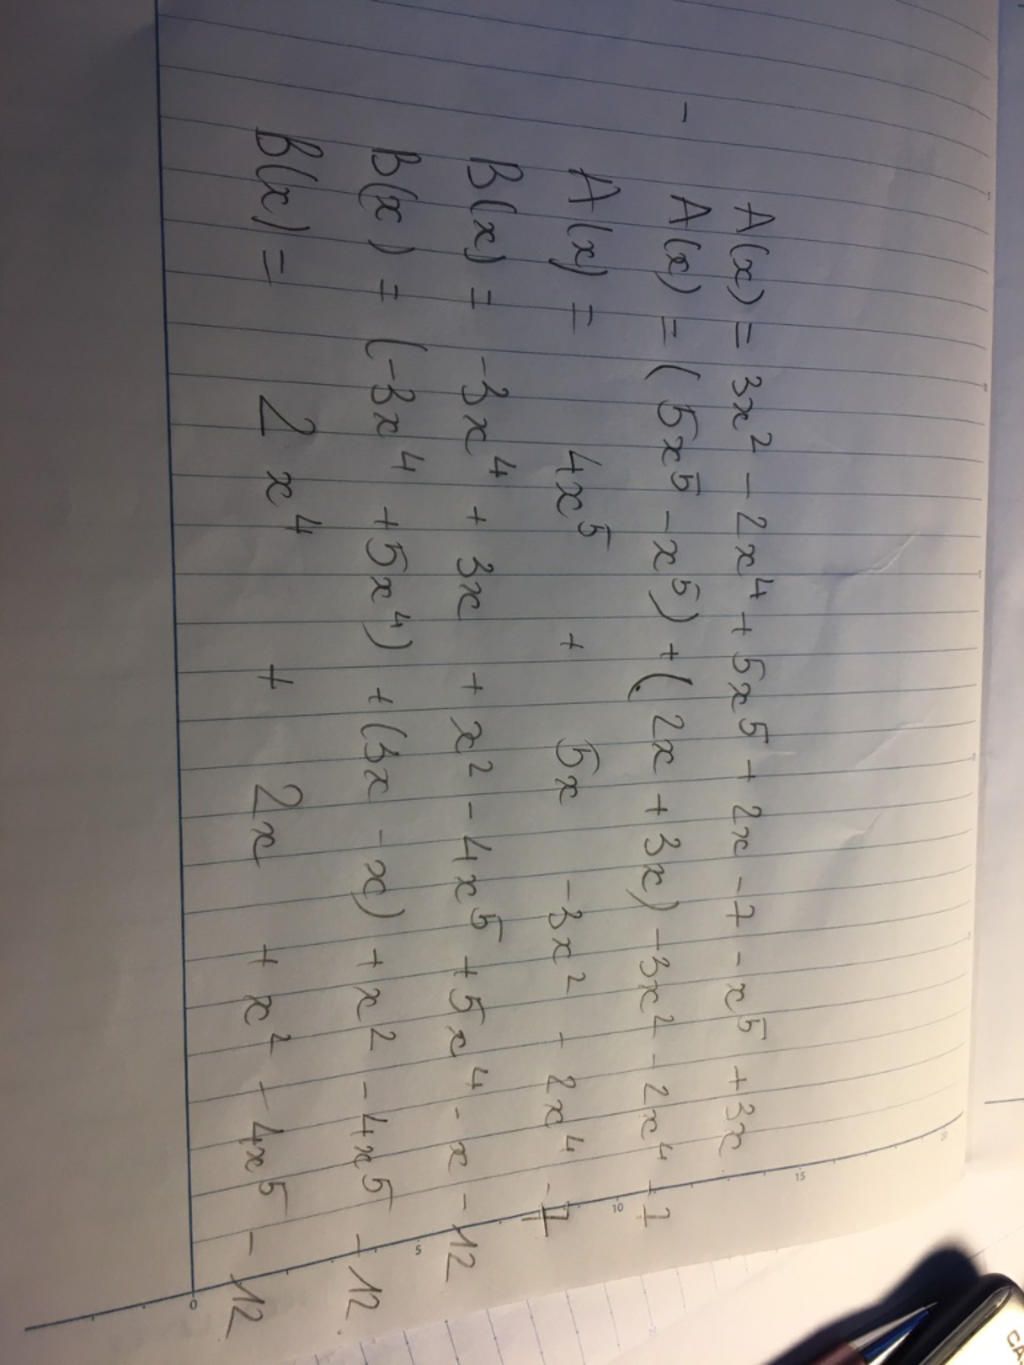 A(x) = 3x² - 2x⁴ + 5x⁵ + 2x - 7 - x⁵ + 3x
- A(x) = (5x⁵ - x⁵) + (2x + 3x) - 3x² - 2x⁴ - 7
A(x) = 4x⁵ + 5x - 3x² - 2x⁴ - 7
B(x) = -3x⁴ + 3x + x² - 4x⁵ + 5x⁴ - x - 12
B(x) = (-3x⁴ + 5x⁴) + (3x - x) + x² - 4x⁵ - 12
B(x) = 2x⁴ + 2x + x² - 4x⁵ - 12
0 5 10 15 20
CA